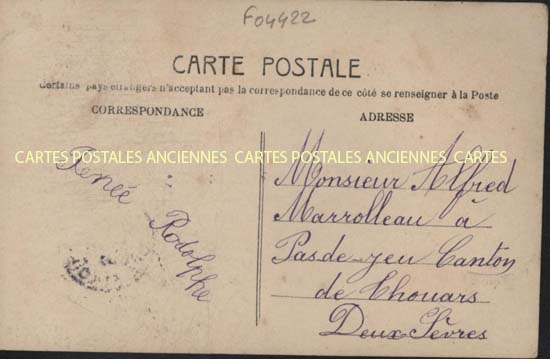 F04422
CARTE POSTALE
Certains pays étrangers n'acceptant pas la correspondance de ce côté se renseigner à la Poste
CORRESPONDANCE
ADRESSE
CARTES POSTALES ANCIENNES CARTES POSTALES ANCIENNES CARTES
Renée
Rodolphe
Monsieur Alfred
Marrolleau à
Pas de jeu Canton
de Thouars
Deux Sèvres